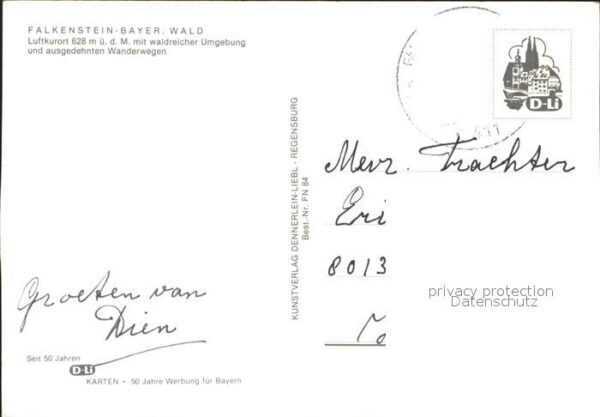 FALKENSTEIN-BAYER. WALD
Luftkurort 628 m ü. d. M. mit waldreicher Umgebung
und ausgedehnten Wanderwegen
D-Li
KUNSTVERLAG DENNERLEIN-LIEBL · REGENSBURG
Best.-Nr. FN 84
Mevr. Trachter
Eri
8013
privacy protection
Datenschutz
To
Groeten van
Dien
Seit 50 Jahren
D-Li
KARTEN - 50 Jahre Werbung für Bayern